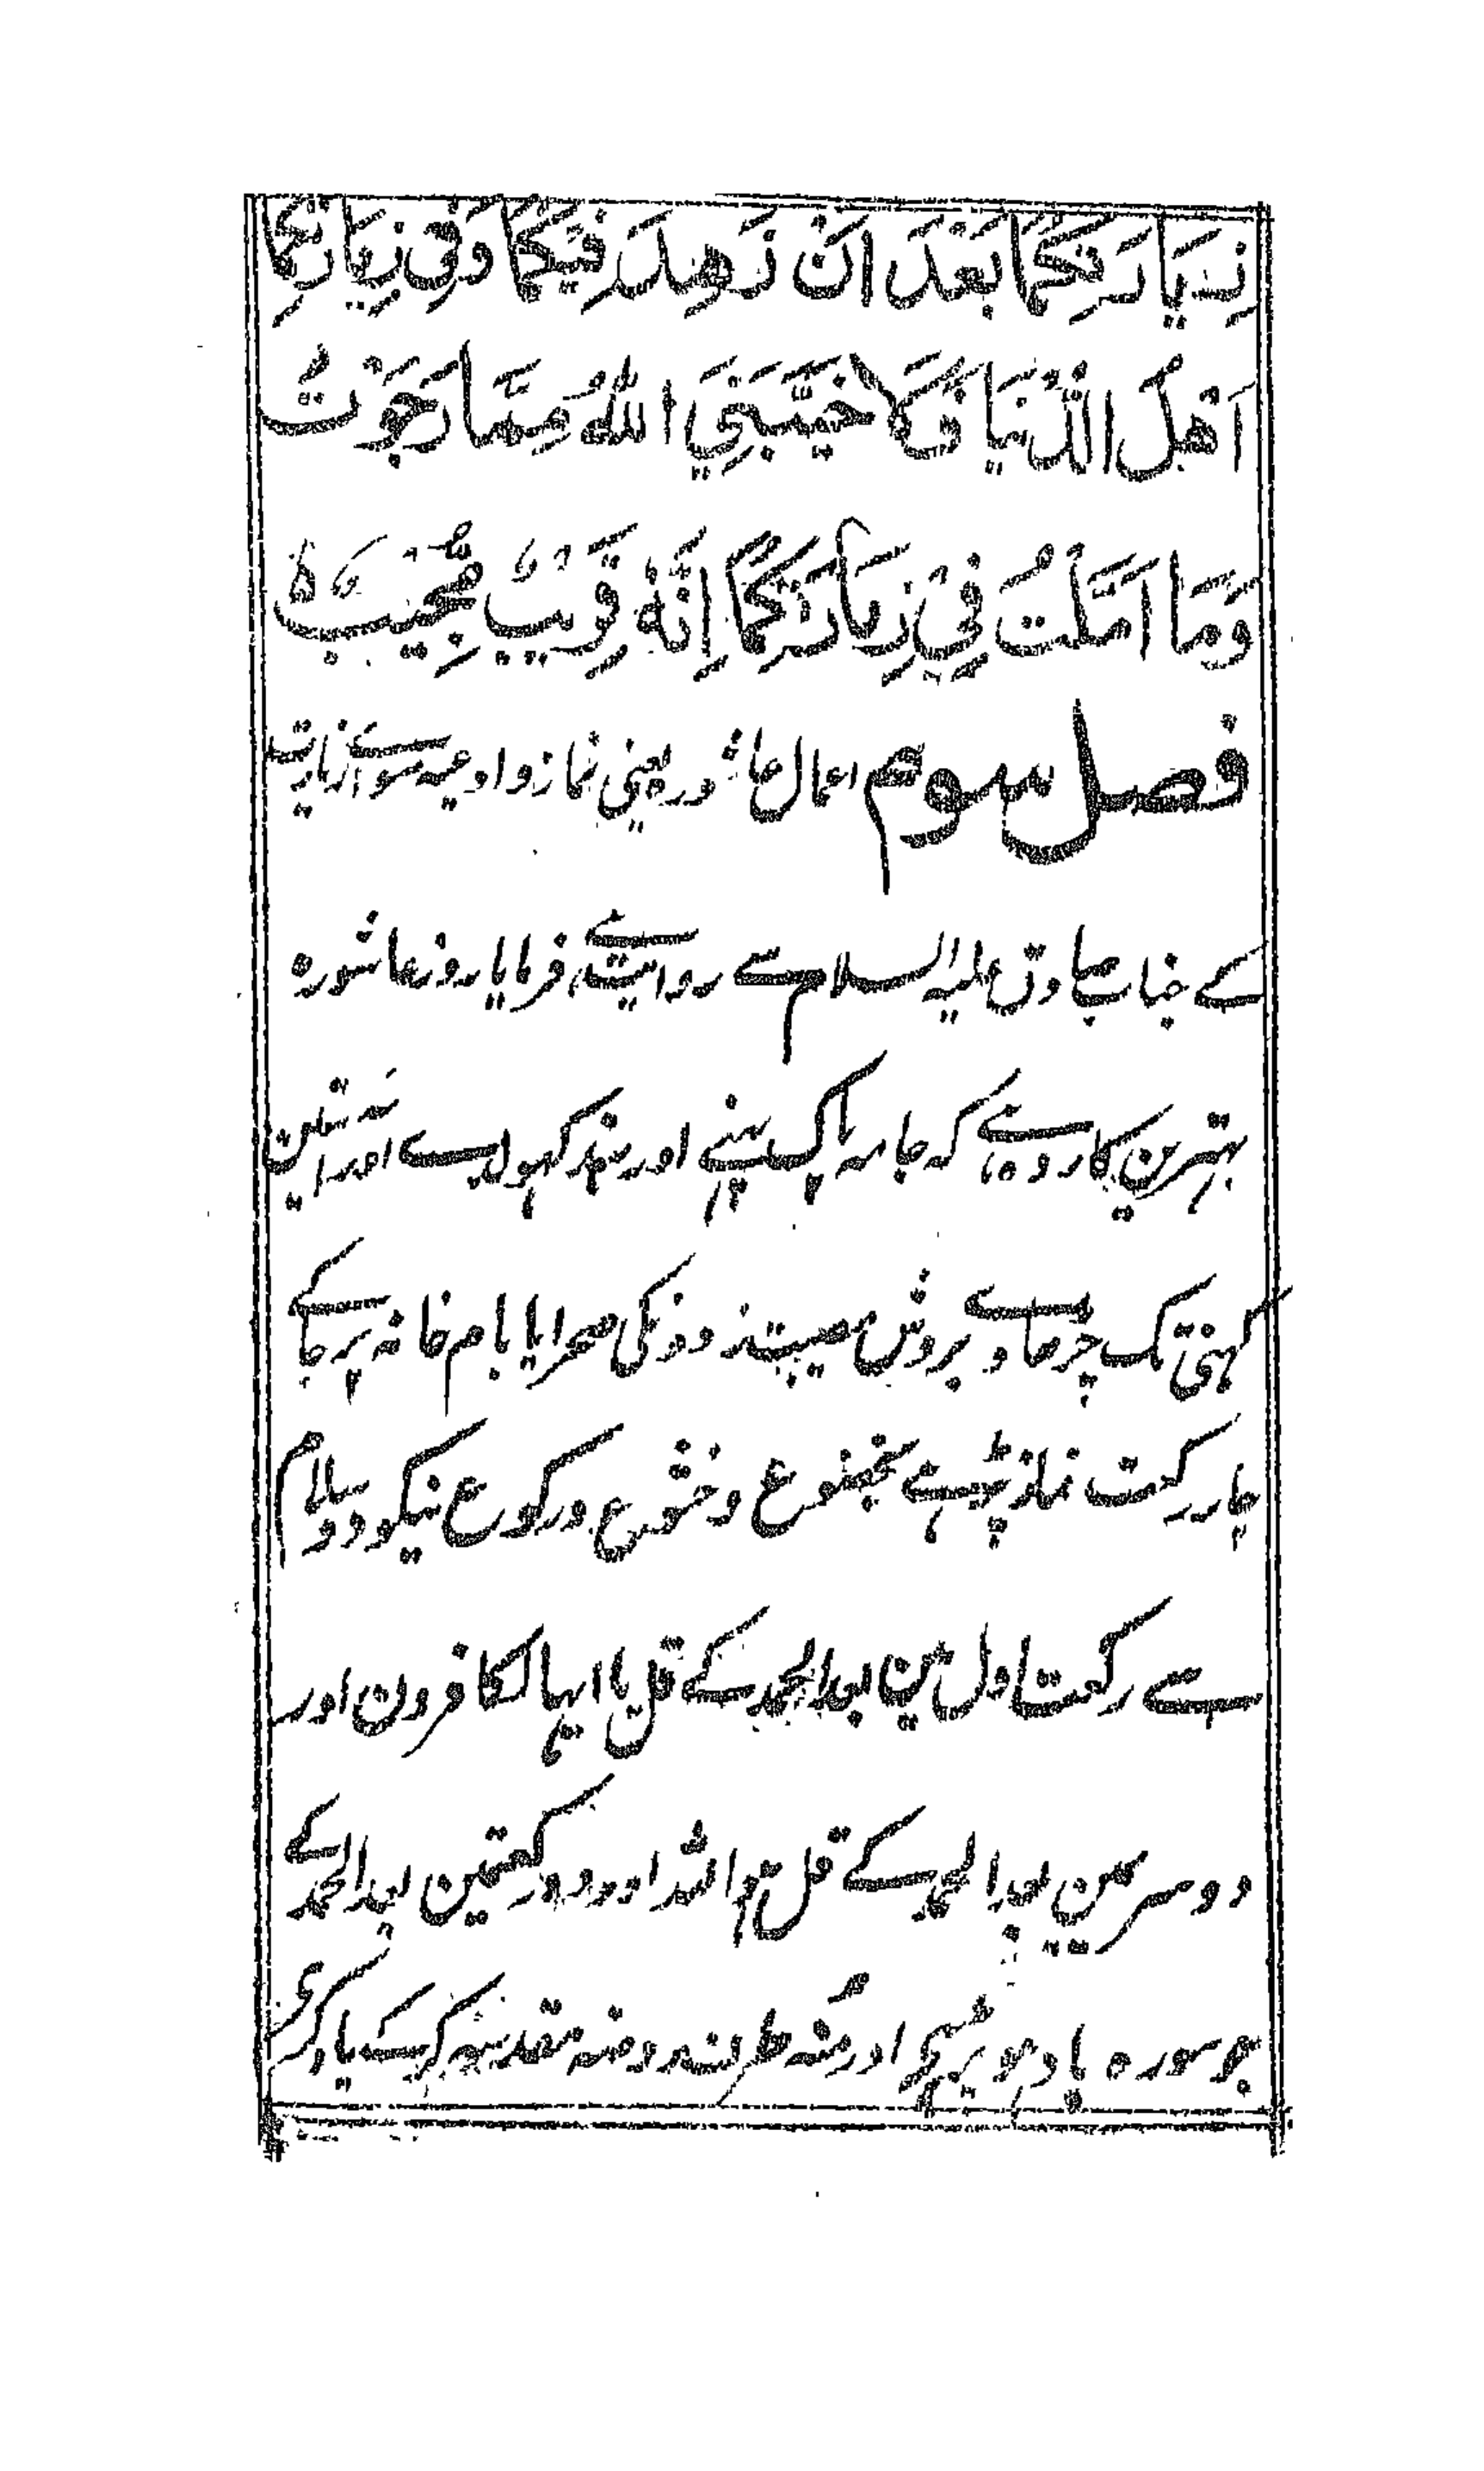 زِيَارَتِكُمَا بَعْدَ اَنْ زَهِدَ فِيْكُمَا وَفِيْ زِيَارَتِكُمَا
اَهْلُ الدُّنْيَا فَلَا خَيَّبَنِيَ اللّٰهُ مِمَّا رَجَوْتُ
وَمَا اَمَّلْتُ فِيْ زِيَارَتِكُمَا اِنَّهٗ قَرِيْبٌ مُّجِيْبٌ
فصل سوم اعمال عاشوره یعنی نماز و ادعیہ سوائے زیارت
کے جناب صادق علیہ السلام سے روایت ہے فرمایا روز عاشورہ
بہترین کار وہ ہے کہ جامہ پاک پہنے اور بند کہول دے اور آستین
کہنی تک چڑھاوے بروش مصیبت زدونکی صحرا یا بام خانہ پر جاکے
چار رکعت نماز پڑہے بخضوع و خشوع و رکوع نیکو دو سلام
سے رکعت اول مین بعد الحمد کے قل یا ایہا الکافرون اور
دوسرین بعد الحمد کے قل ہو اللہ اور دو رکعتمین بعد الحمد کے
جو سورہ یاد ہو پڑہی اور منہ طرف روضہ مقدسہ کرکے یاد کری